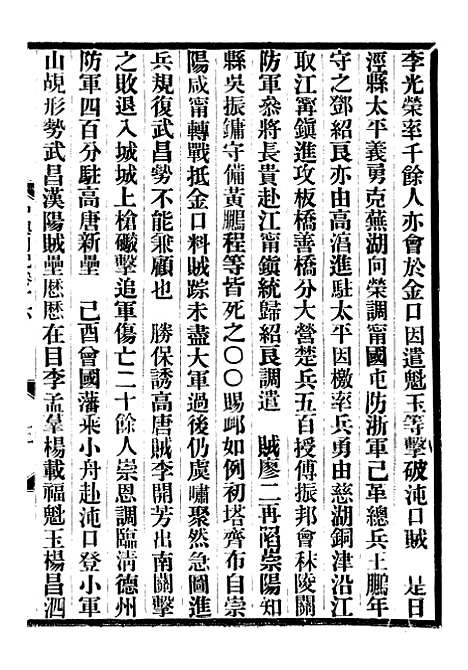 李光榮率千餘人亦會於金口因遣魁玉等擊破沌口賊　是日
涇縣太平義勇克蕪湖向榮調甯國屯防浙軍已革總兵王鵬年
守之鄧紹良亦由高淳進駐太平因檄率兵勇由慈湖銅津沿江
取江甯鎮進攻板橋善橋分大營楚兵五百授傅振邦會秣陵關
防軍叅將長貴赴江甯鎮統歸紹良調遣　賊廖二再陷崇陽知
縣吳振鏞守備黃鵬程等皆死之〇〇賜卹如例初塔齊布自崇
陽咸甯轉戰抵金口料賊踪未盡大軍過後仍虞嘯聚然急圖進
兵規復武昌勢不能兼顧也　勝保誘高唐賊李開芳出南關擊
之敗退入城城上槍礮擊追軍傷亡二十餘人崇恩調臨清德州
防軍四百分駐高唐新壘　己酉曾國藩乘小舟赴沌口登小軍
山覘形勢武昌漢陽賊壘歷歷在目李孟羣楊載福魁玉楊昌泗